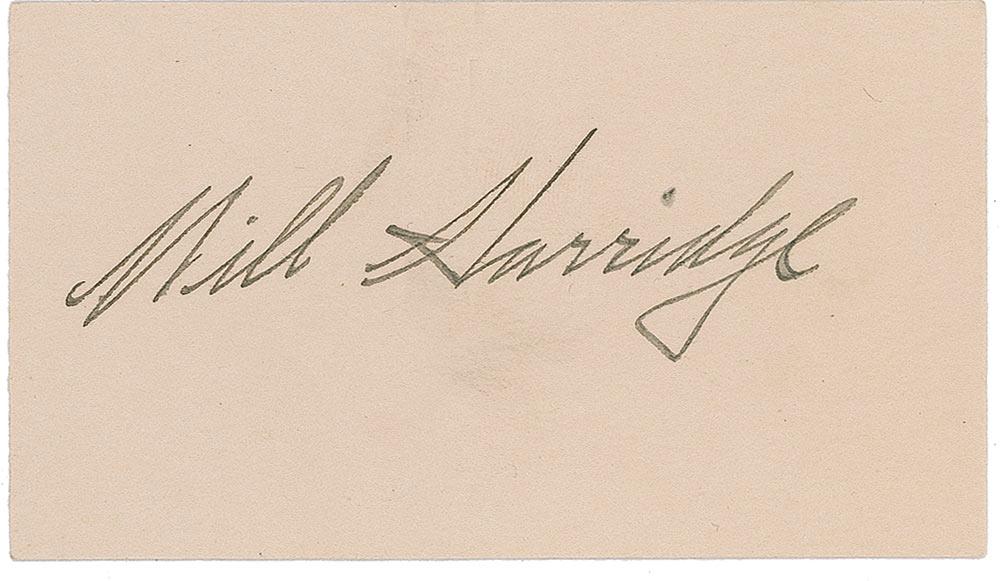 Will Harridge